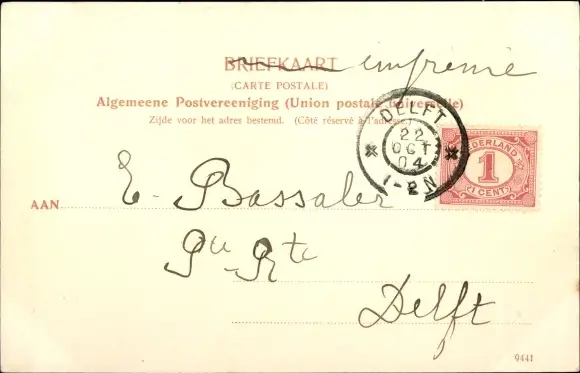 BRIEFKAART imprimé
(CARTE POSTALE)
Algemeene Postvereeniging (Union postale universelle)
Zijde voor het adres bestemd. (Côté réservé à l'adresse.)
DELFT
22
OCT
04
1-2N
NEDERLAND
1
1 CENT
AAN E. Bassaler
Pte Rte
Delft
9441